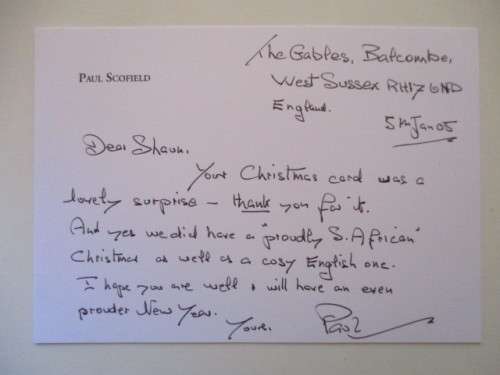 PAUL SCOFIELD
The Gables, Balcombe,
West Sussex RH17 6ND
England.
5th Jan 05
Dear Shaun.
Your Christmas card was a
lovely surprise – thank you for it.
And yes we did have a "proudly S. African"
Christmas as well as a cosy English one.
I hope you are well & will have an even
prouder New Year.
Yours. Paul